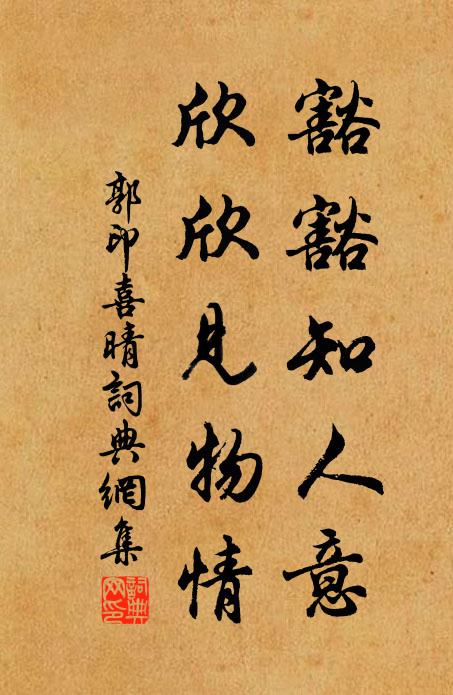 豁豁知人意
欣欣見物情
郭印喜晴詞典網集
詞典网印